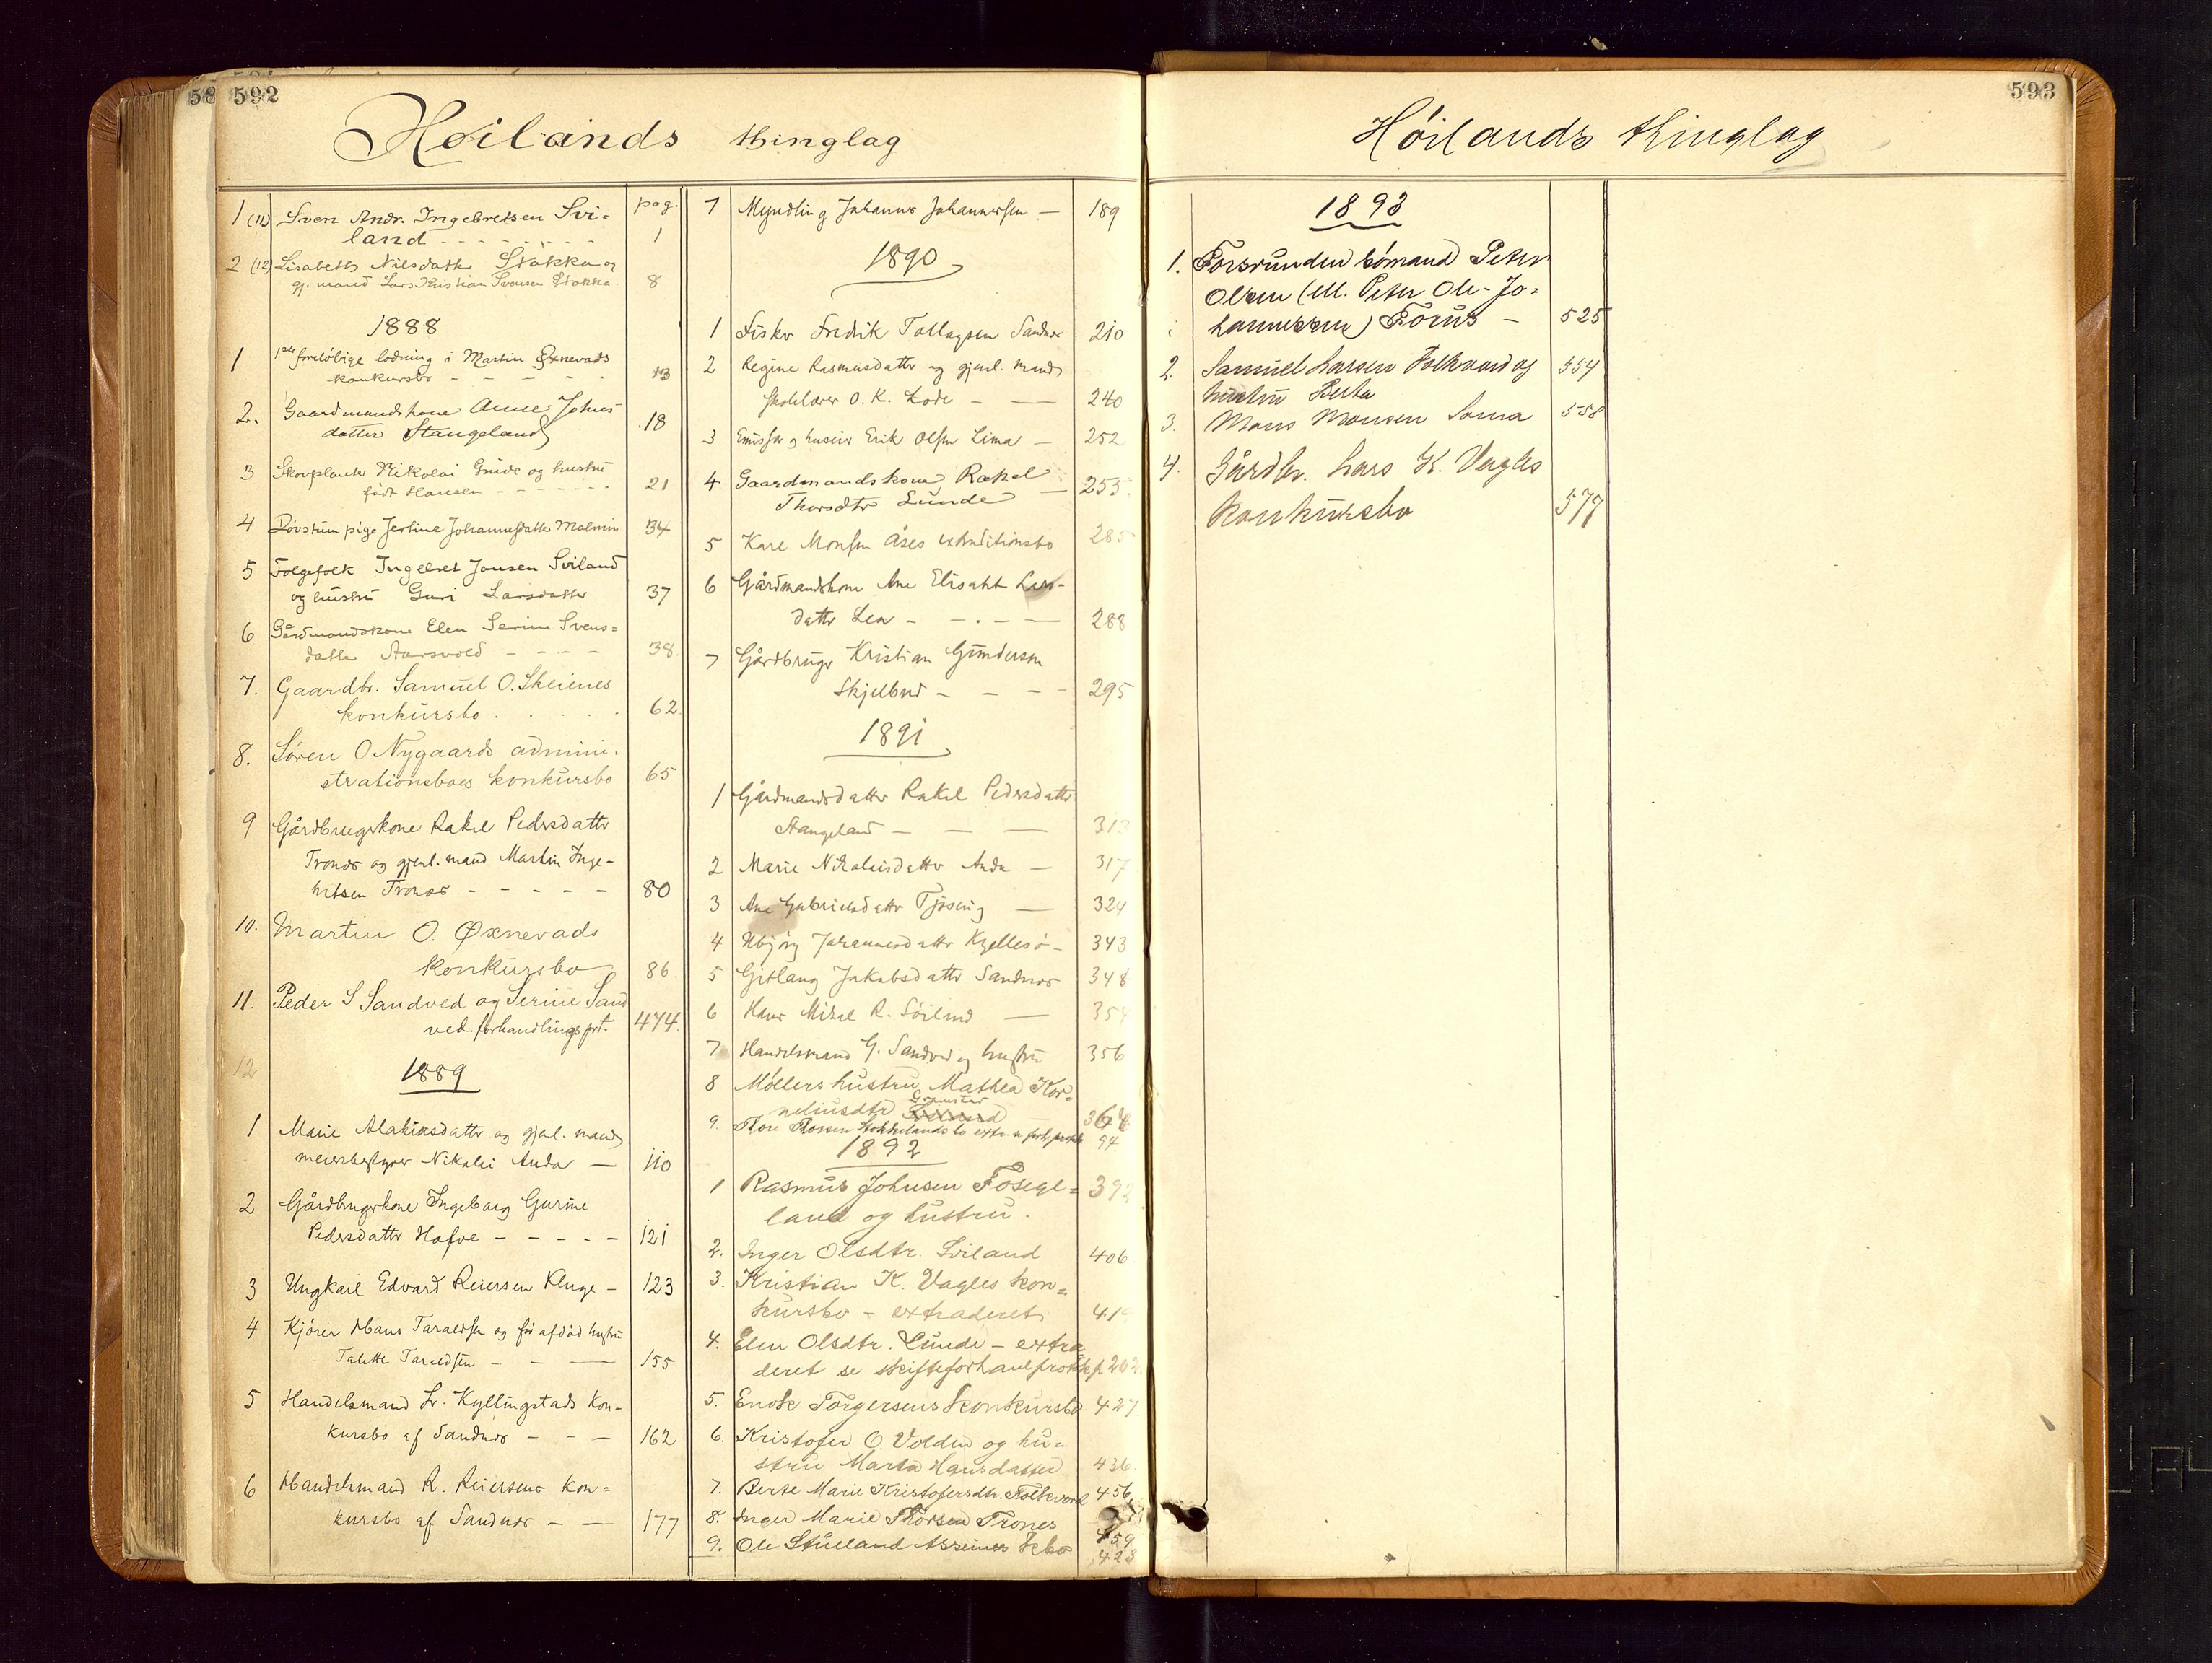 592
Høilands thinglag
pag.
1 (11) Sven Andr. Ingebretsen Svi=
land - - - - - - - 1
2 (12) Lisabeth Nilsdatter Stokka og
gj. mand Lars Kristian Svensen Stokka. 8
1888
1 1ste foreløbige lodning i Martin Øxnevads
konkursbo - - - - - 13
2. Gaardmandskone Anne Johns
datter Stangeland 18
3 Skovplanter Nikolai Grude og hustru
født Hansen - - - - - - - 21
4 Døvstum pige Jertine Johannesdatter Malmin 34
5 Følgefolk Ingebret Jonsen Sviland
og hustru Guri Larsdatter 37
6 Gårdmandskone Elen Serine Svens=
datter Aarsvold - - - - 38
7. Gaardbr. Samuel O. Skeienes
konkursbo . . . . . 62
8. Søren O Nygaards admini.
strationsboes konkursbo 65
9 Gårdbrugerkone Rakel Pedersdatter
Trones og gjenl. mand Martin Inge-
bretsen Trones - - - - - 80
10. Martin O. Øxnevads
konkursbo 86
11. Peder S Sandved og Serine Sand
ved. forhandlingsprt. 474.
12
1889
1 Marie Malakiasdatter og gjenl. mands
meieribestyrer Nikolai Anda — 110
2 Gårdbrugerkone Ingeborg Gurine
Pedersdatter Hofve - - - - - 121
3 Ungkarl Edvard Reiersen Kluge - 123
4 Kjører Hans Taraldsen og før afdød hustru
Talette Taraldsen - - — 155
5 Handelsmand Lr. Kyllingstads kon-
kursbo af Sandnes - - — 162
6 Handelsmand R. Reiersens kon=
kursbo af Sandnes - — 177
7 Myndling Johannes Johannessen — 189
1890
1 Fisker Fredrik Tollagsen Sandnes 210
2 Regine Rasmusdatter og gjenl. mands
skolelærer O. K. Lode - — 240
3 Emissær og huseier Erik Olsen Lima — 252
4 Gaardmandskone Rakel
Thorsdtr Lunde — 255.
5 Kare Monsen Åses extraditionsbo 285
6 Gårdmandskone Ane Elisabet Lars-
datter Lea - - . - — 288
7 Gårdbruger Kristian Gundersen
Skjelbred - — - - 295
1891
1 Gårdmandsdatter Rakel Pedersdatter
Stangeland — — — 313
2 Marie Nikolaisdatter Anda — 317
3 Ane Gabrielsdatter Tjøssing — 324
4 Ubjørg Johannesdatter Kyllesø - 343
5 Gitlaug Jakobsdatter Sandnes 348
6 Hans Mikal R. Søiland — 354
7 Handelsmand G. Sandved og hustru 356
8 Møllers hustru Mathea Kor=
Gramstad
neliusdtr 364
9. Tore Thorsen Stokkelands bo extr. se forh. protok 94
1892
1 Rasmus Johnsen Fosege=
land og hustru. 392
2. Inger Olsdtr. Sviland 406
3. Kristian K. Vagles kon=
kursbo - extraderet 419
4. Elen Olsdtr. Lunde - extra
deret se skifteforhanlprotok p 202
5. Enok Torgersens konkursbo 427
6. Kristofer O. Volden og hu=
stru Marta Hansdatter 436
7. Berte Marie Kristofersdtr. Folkvord 456
8. Inger Marie Thorsen Trones 459
9. Ole Stueland Asseims kbo 423
593
Høilands thinglag
1893
1. Forsvunden sømand Peter
Olsen (ell. Peter Ole Jo=
hannessen) Forus - 525
2. Samuel Larsen Folkvord og 554
hustru Berta
3. Mons Monsen Soma 558
4. Gårdbr. Lars K. Vagles
konkursbo 577